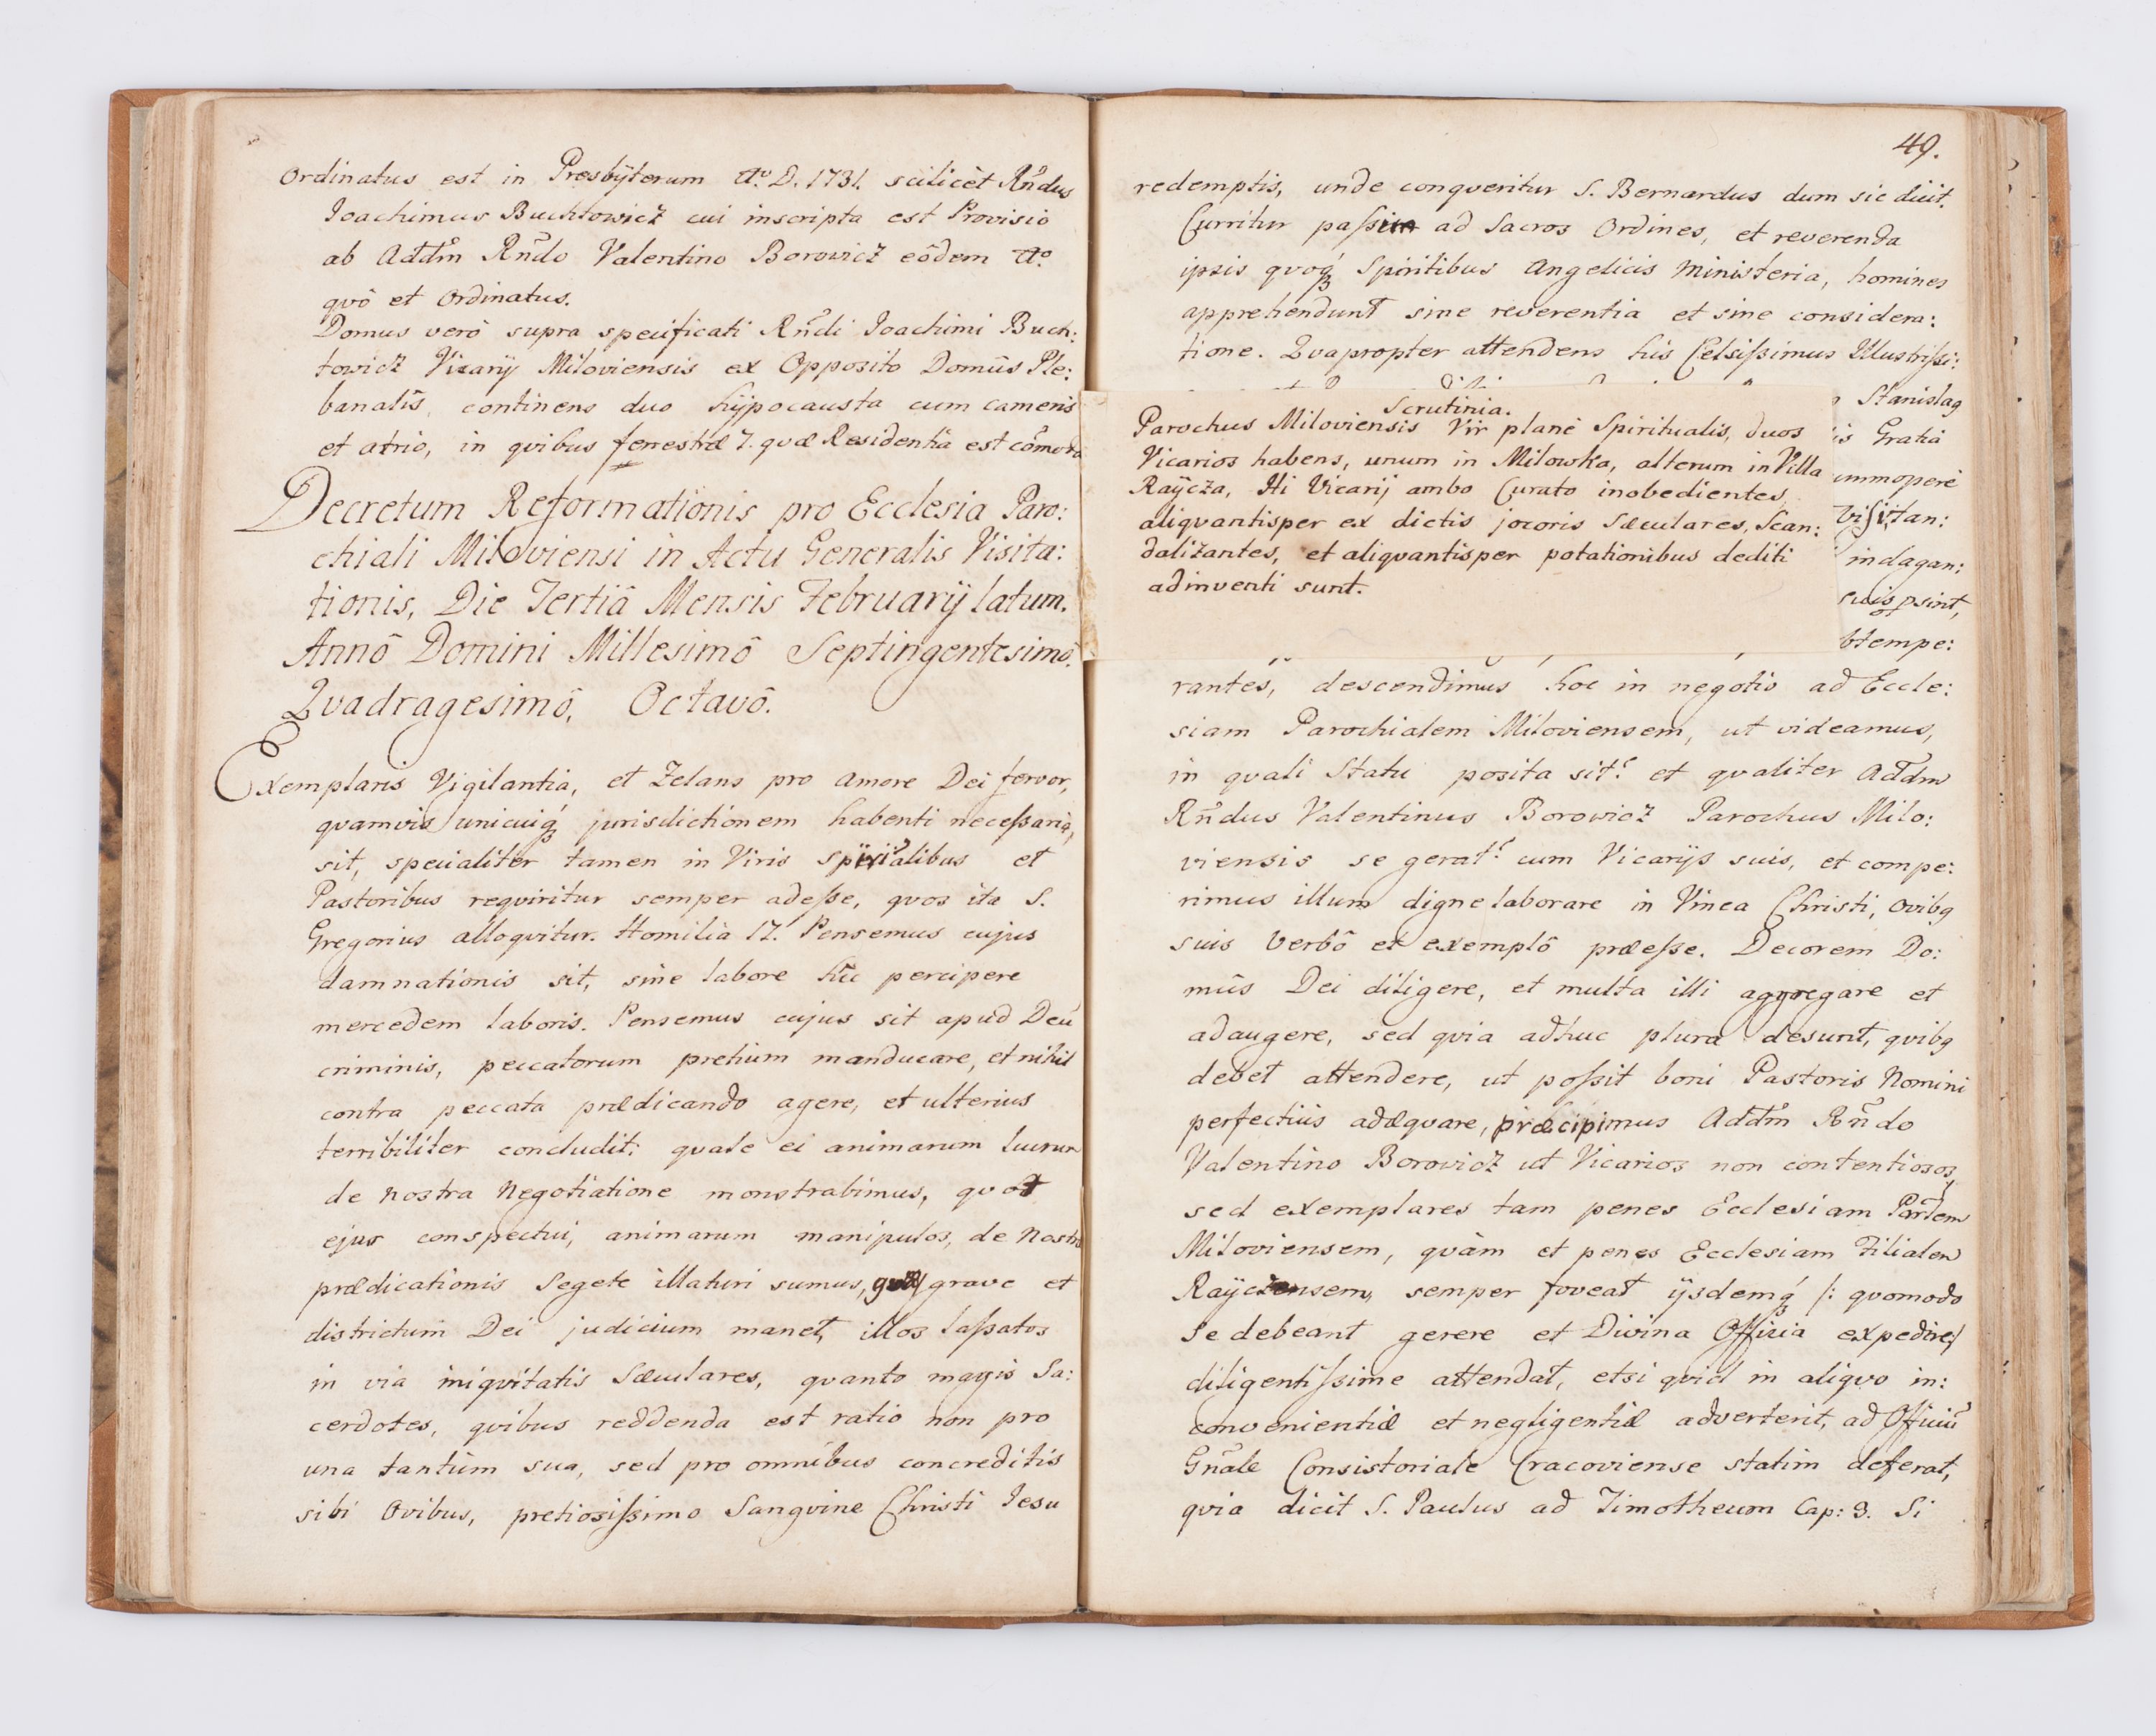 Ordinatus est in Presbÿterum Aº D. 1731. scilicèt Rñdus
Joachimus Buchtowicz cui inscripta est Provisio
ab Addm Rñdo Valentino Borowicz eôdem Aº
quô et Ordinatus.
Domus verô supra specificati Rñdi Joachimi Buch:
towicz Vicarÿ Miloviensis ex Opposito Domûs Ple:
banalis, continens duo hÿpocausta cum cameris
et atrio, in quibus fenestræ 7. quæ Residentia est cõmoda
Decretum Reformationis pro Ecclesia Paro:
chiali Miloviensi in Actu Generalis Visita:
tionis, Die Tertiâ Mensis Februarÿ latum.
Annô Domini Millesimô Septingentesimô
Quadragesimô, Octavô.
Exemplaris Vigilantia, et Zelans pro amore Dei fervor,
quamvis unicuiq́ jurisdictionem habenti necessaria,
sit, specialiter tamen in Viris spiritalibus et
Pastoribus requiritur semper adesse, quos ita S.
Gregorius alloquitur. Homilia 17. Pensemus cujus
damnationis sit, sine labore hic percipere
mercedem laboris. Pensemus cujus sit apud Deũ
criminis, peccatorum pretium manducare, et nihil
contra peccata prædicando agere, et ulterius
terribiliter concludit: quale ei animarum lucrum
de nostra Negotiatione monstrabimus, quot
ejus conspectui, animarum manipulos, de Nostra
prædicationis Segete illaturi sumus, grave et
districtum Dei judicium manet, illos lassatos
in via iniquitatis Sæculares, quanto magis Sa:
cerdotes, quibus reddenda est ratio non pro
una tantùm sua, sed pro omnibus concreditis
sibi Ovibus, pretiosissimo Sanguine Christi Jesu
49.
redemptis, unde conqueritur S. Bernardus dum sic dicit.
Curritur passim ad Sacros Ordines, et reverenda
ipsis quoq́ Spiritibus Angelicis Ministeria, homines
apprehendunt sine reverentia et sine considera:
tione. Quapropter attendens his Celsissimus Illustrissi:
Scrutinia.
Parochus Miloviensis Vir planè Spiritualis, duos
Vicarios habens, unum in Milowka, alterum in Villa
Raÿcza, Hi Vicarij ambo Curato inobedientes,
aliquantisper ex dictis jocoris Sæculares, Scan:
dalizantes, et aliquantisper potationibus dediti
adinventi sunt.
Stanislaꝯ
Gratiâ
ummoperè
Visitan:
indagan:
sint,
btempe:
rantes, descendimus hoc in negotio ad Eccle:
siam Parochialem Miloviensem, ut videamus,
in quali Statu posita sit? et qualiter Addm
Rñdus Valentinus Borowicz Parochus Milo:
viensis se gerat? cum Vicarÿs suis, et compe:
rimus illum digne laborare in Vinea Christi, Ovibꝯ
suis Verbô et exemplô præesse. Decorem Do:
mûs Dei diligere, et multa illi aggregare et
adaugere, sed quia adhuc plura desunt, quibꝯ
debet attendere, ut possit boni Pastoris Nomini
perfectiùs adæquare, præcipimus Addm Rñdo
Valentino Borowicz ut Vicarios non contentiosos,
sed exemplares tam penes Ecclesiam Parlem
Miloviensem, quàm et penes Ecclesiam Filialem
Raÿczensem, semper foveat ÿsdemq́ /: quomodo
se debeant gerere et Divina Officia expedire/
diligentissime attendat, etsi quid in aliquo in:
convenientiæ et negligentiæ adverterit, ad Officiũ
Gñale Consistoriale Cracoviense statim deferat,
quia dicit S. Paulus ad Timotheum Cap: 3. Si